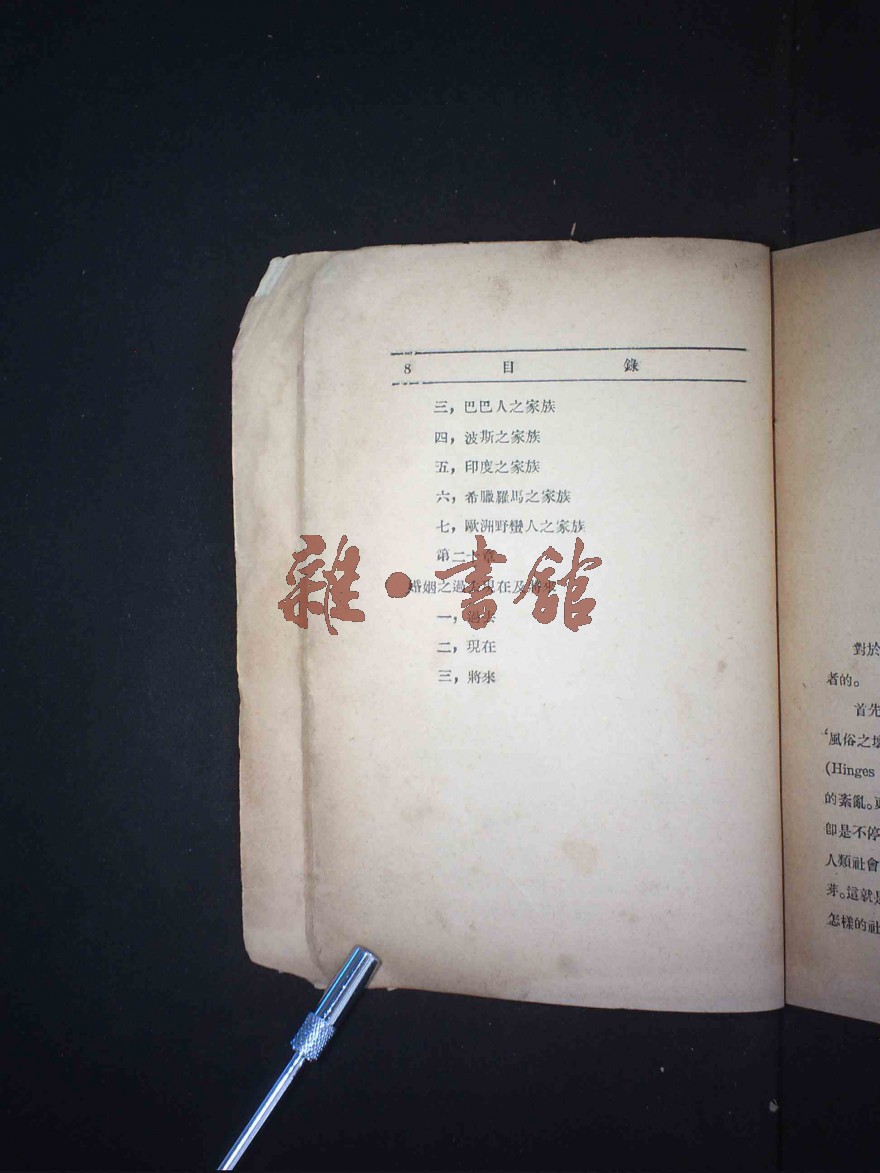 8 目 錄
三，巴巴人之家族
四，波斯之家族
五，印度之家族
六，希臘羅馬之家族
七，歐洲野蠻人之家族
第二十章
婚姻之過去現在及將來
一，過去
二，現在
三，將來
雜·書館
對於
者的。
首先
‘風俗之壞
(Hinges
的紊亂。
卽是不停
人類社會
芽。這就是
怎樣的社